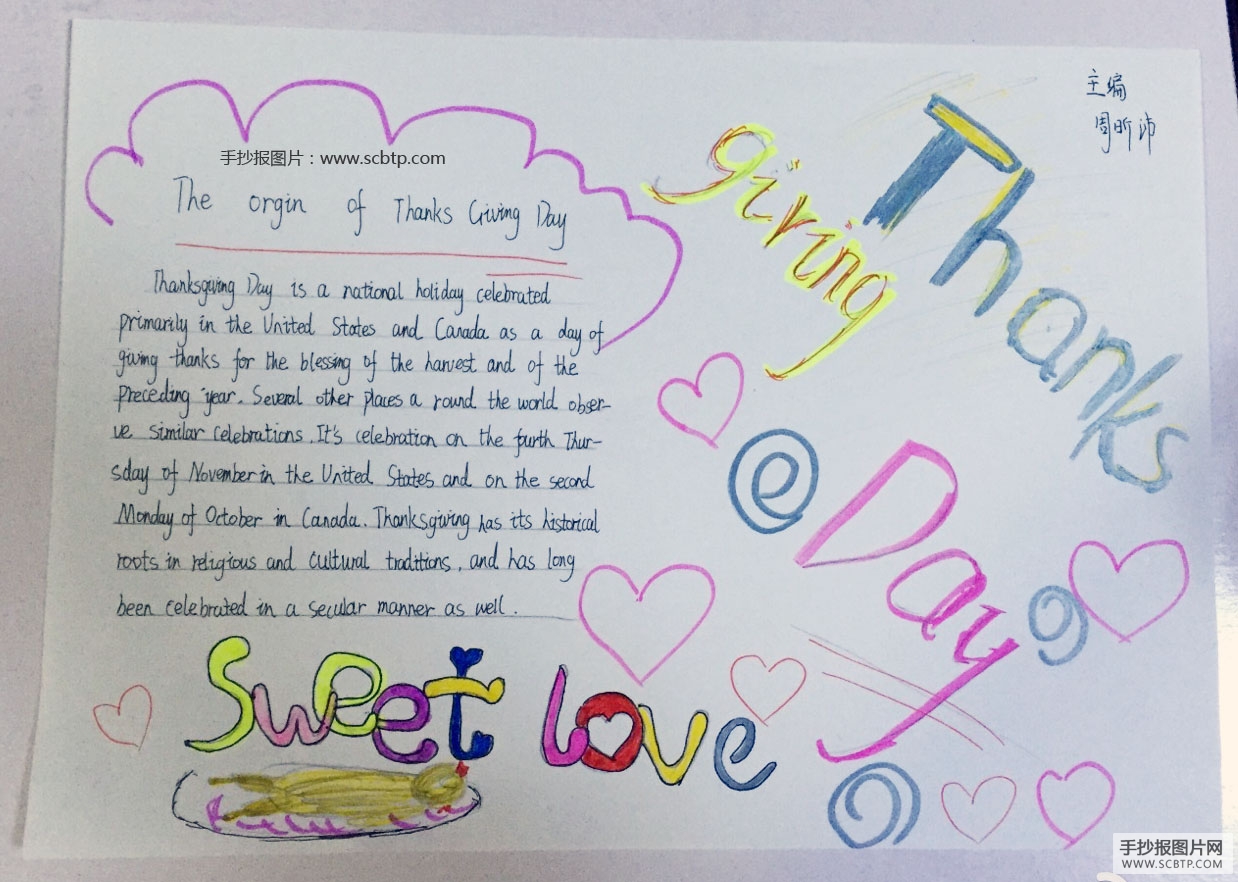 手抄报图片：www.scbtp.com
The orgin of Thanks Giving Day
Thanksgiving Day is a national holiday celebrated
primarily in the United States and Canada as a day of
giving thanks for the blessing of the harvest and of the
preceding year. Several other places a round the world obser-
ve similar celebrations. It's celebration on the fourth Thur-
sday of November in the United States and on the second
Monday of October in Canada. Thanksgiving has its historical
roots in religious and cultural traditions, and has long
been celebrated in a secular manner as well.
sweet love
Thanks
giving
Day
主编
周昕沛
手抄报图片网
WWW.SCBTP.COM